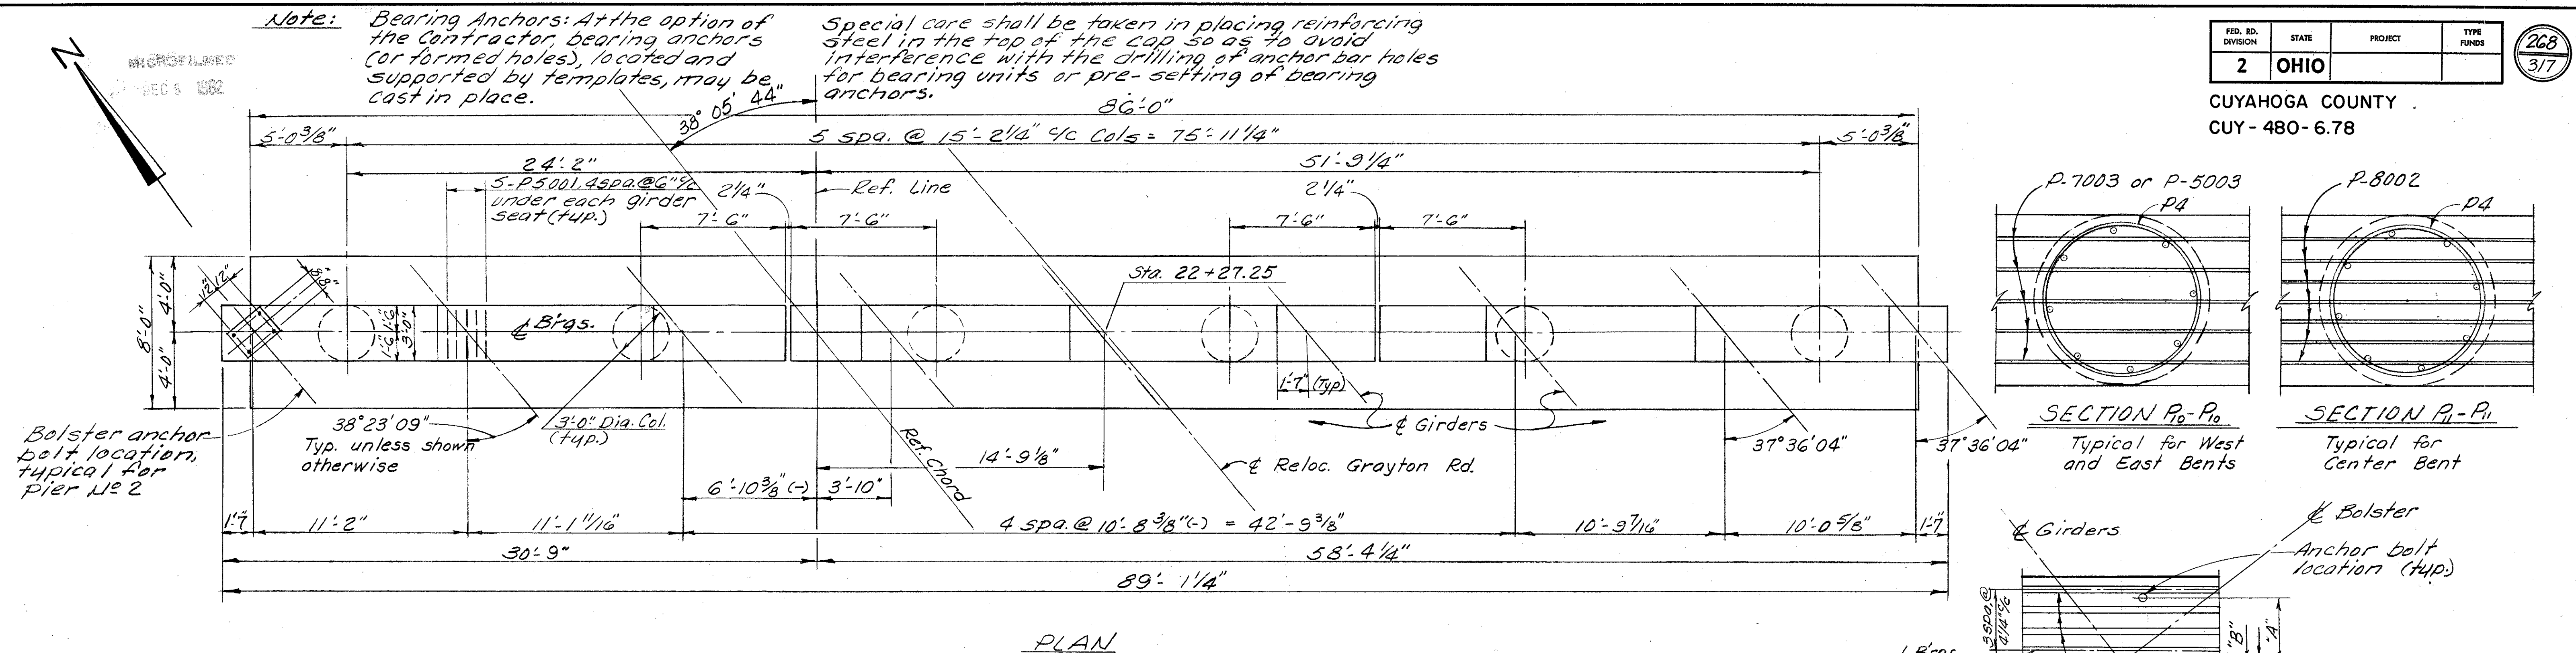 Note:
Bearing Anchors: At the option of
the Contractor, bearing anchors
(or formed holes), located and
supported by templates, may be
cast in place.
Special care shall be taken in placing reinforcing
steel in the top of the cap so as to avoid
interference with the drilling of anchor bar holes
for bearing units or pre-setting of bearing
anchors.
N
MICROFILMED
DEC 6 1982
FED. RD. DIVISION
STATE
PROJECT
TYPE FUNDS
2
OHIO
268
317
CUYAHOGA COUNTY
CUY-480-6.78
38° 05' 44"
86'-0"
5'-0 3/8"
5 spa. @ 15'-2 1/4" c/c Cols = 75'-11 1/4"
5'-0 3/8"
24'-2"
51'-9 1/4"
5-P5001, 4 spa. @ 6" c/c
under each girder
seat (typ.)
2 1/4"
Ref. Line
2 1/4"
7'-6"
7'-6"
7'-6"
7'-6"
P-7003 or P-5003
P4
P-8002
P4
12"
12"
8"
8"
8'-0"
4'-0"
4'-0"
1'-6"
1'-6"
3'-0"
₵ Brgs.
Sta. 22+27.25
1'-7" (Typ)
Bolster anchor
bolt location,
typical for
Pier No 2
38°23'09"
Typ. unless shown
otherwise
3'-0" Dia. Col.
(typ.)
Ref. Chord
14'-9 1/8"
₵ Girders
₵ Reloc. Grayton Rd.
37°36'04"
37°36'04"
6'-10 3/8" (-)
3'-10"
1'-7"
11'-2"
11'-1 11/16"
4 spa. @ 10'-8 3/8" (-) = 42'-9 3/8"
10'-9 7/16"
10'-0 5/8"
1'-7"
30'-9"
58'-4 1/4"
89'-1 1/4"
PLAN
SECTION P10-P10
Typical for West
and East Bents
SECTION P11-P11
Typical for
Center Bent
₵ Girders
₵ Bolster
Anchor bolt
location (typ.)
3 spa. @
4 1/4" c/c
"B"
"A"